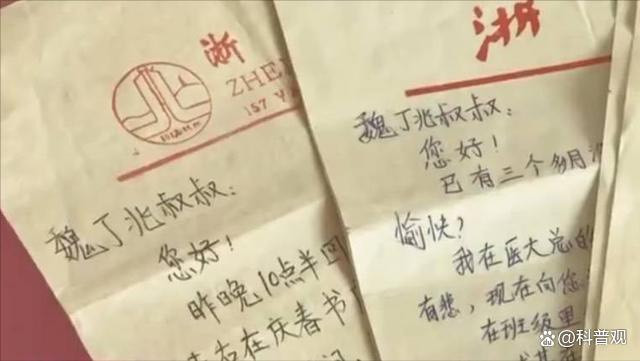 浙
ZHE
157 Y
魏丁兆叔叔：
您好！
昨晚10点半回
右在庆春书
浙
魏丁兆叔叔：
您好！
已有三个多月没
愉快？
我在医大总的
有悲，现在向您
在班级里
科普观